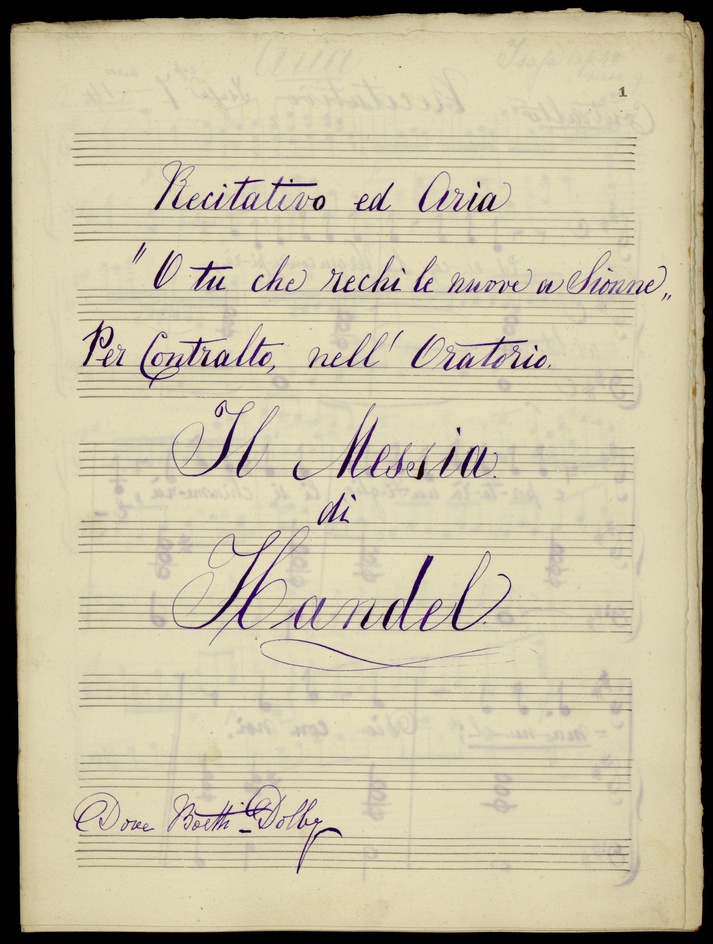 1
Recitativo ed Aria
"O tu che rechi le nuove a Sionne„
Per Contralto, nell' Oratorio.
Il Messia
di
Handel
Dove Boetti-Dolby